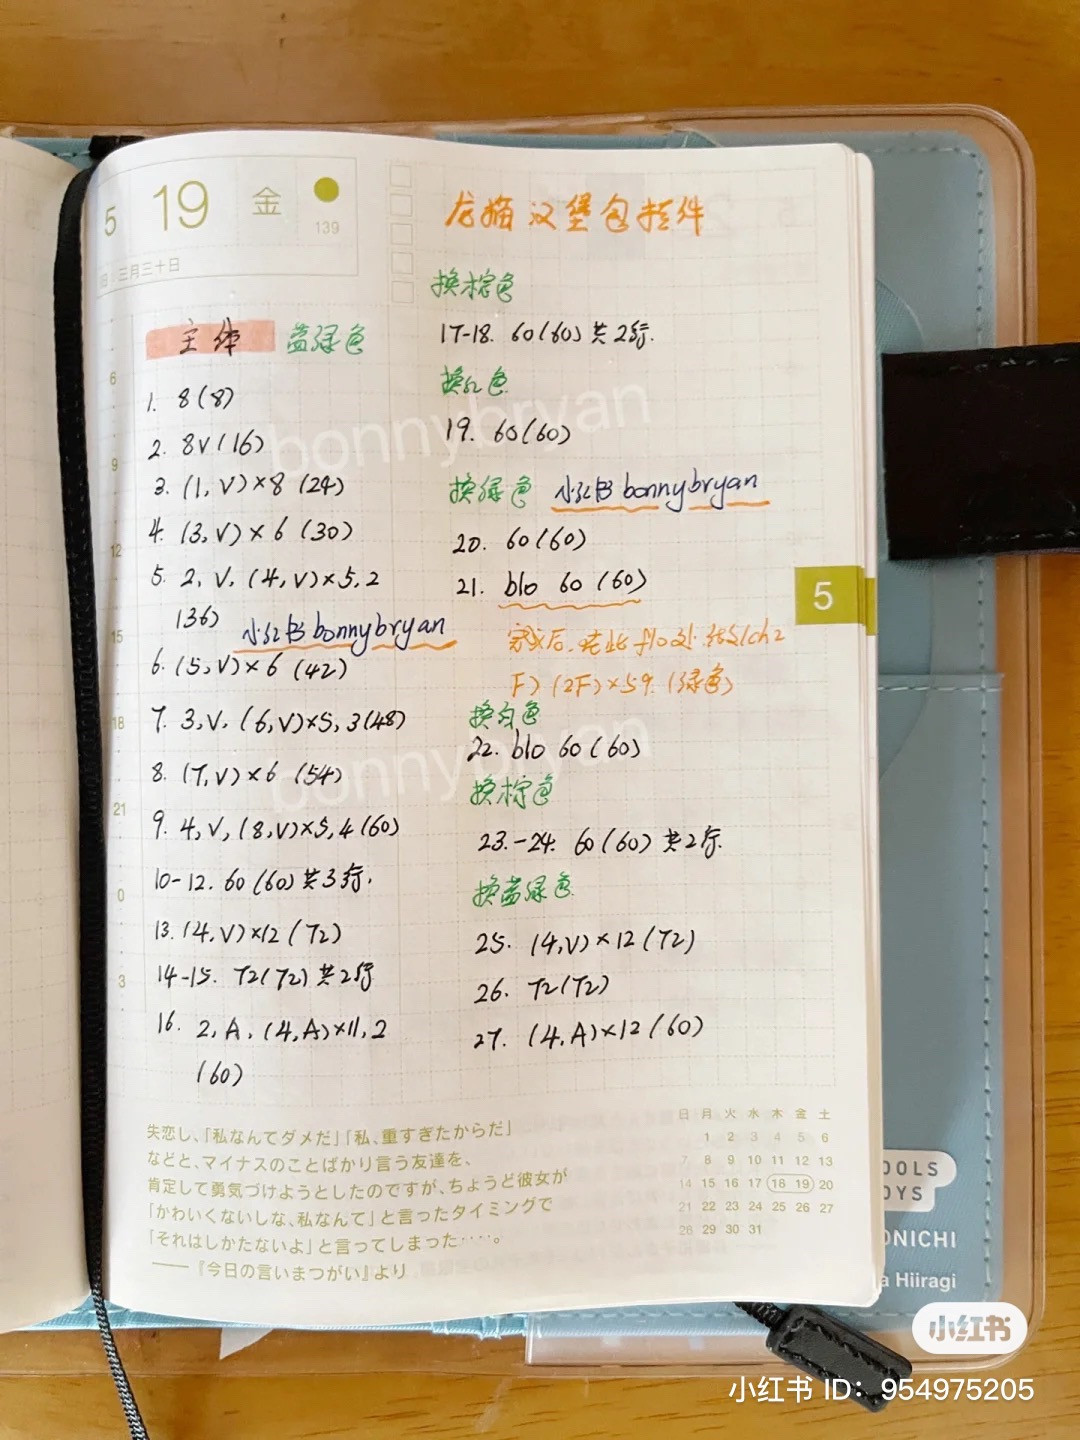 5 19 金
139
三月三十日
龙猫汉堡包挂件
主体 蓝绿色
1. 8(8)
2. 8V(16)
3. (1,V)×8 (24)
4. (3,V)×6 (30)
5. 2,V,(4,V)×5,2
(36)
小红书bonnybryan
6. (5,V)×6 (42)
7. 3,V,(6,V)×5,3(48)
8. (7,V)×6 (54)
9. 4,V,(8,V)×5,4(60)
10-12. 60(60)共3行.
13. (4,V)×12(72)
14-15. 72(72)共2行
16. 2,A,(4,A)×11,2
(60)
换棕色
17-18. 60(60)共2行.
换红色
19. 60(60)
换绿色 小红书bonnybryan
20. 60(60)
21. blo 60(60)
完成后,在此flo处,钩(ch2
F)(2F)×59.(绿色)
换白色
22. blo 60(60)
换棕色
23.-24. 60(60)共2行.
换蓝绿色
25. (4,V)×12(72)
26. 72(72)
27. (4,A)×12(60)
bonnybryan
bonnybryan
6
9
12
15
18
21
0
3
5
失恋し、「私なんてダメだ」「私、重すぎたからだ」
などと、マイナスのことばかり言う友達を、
肯定して勇気づけようとしたのですが、ちょうど彼女が
「かわいくないしな、私なんて」と言ったタイミングで
「それはしかたないよ」と言ってしまった‥‥。
——『今日の言いまつがい』より
日 月 火 水 木 金 土
1 2 3 4 5 6
7 8 9 10 11 12 13
14 15 16 17 18 19 20
21 22 23 24 25 26 27
28 29 30 31
OOLS
OYS
ONICHI
a Hiiragi
小红书
小红书 ID：954975205